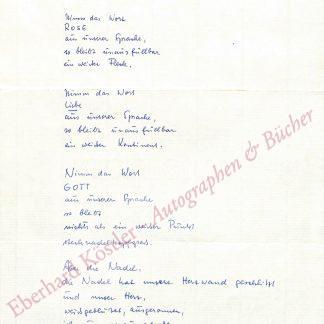 Nimm das Wort
ROSE
aus unserer Sprache,
so bleibt unausfüllbar
ein weisser Fleck.
Nimm das Wort
Liebe
aus unserer Sprache,
so bleibt unausfüllbar
ein weisser Kontinent.
Nimm das Wort
GOTT
aus unserer Sprache
so bleibt
nichts als ein weisser Punkt
stecknadelkopfgross.
Aber die Nadel,
die Nadel hat unsere Herzwand
und unser Herz,
weissgeblutet, ausgeronnen,
Eberhard Köstler - Autographen & Bücher